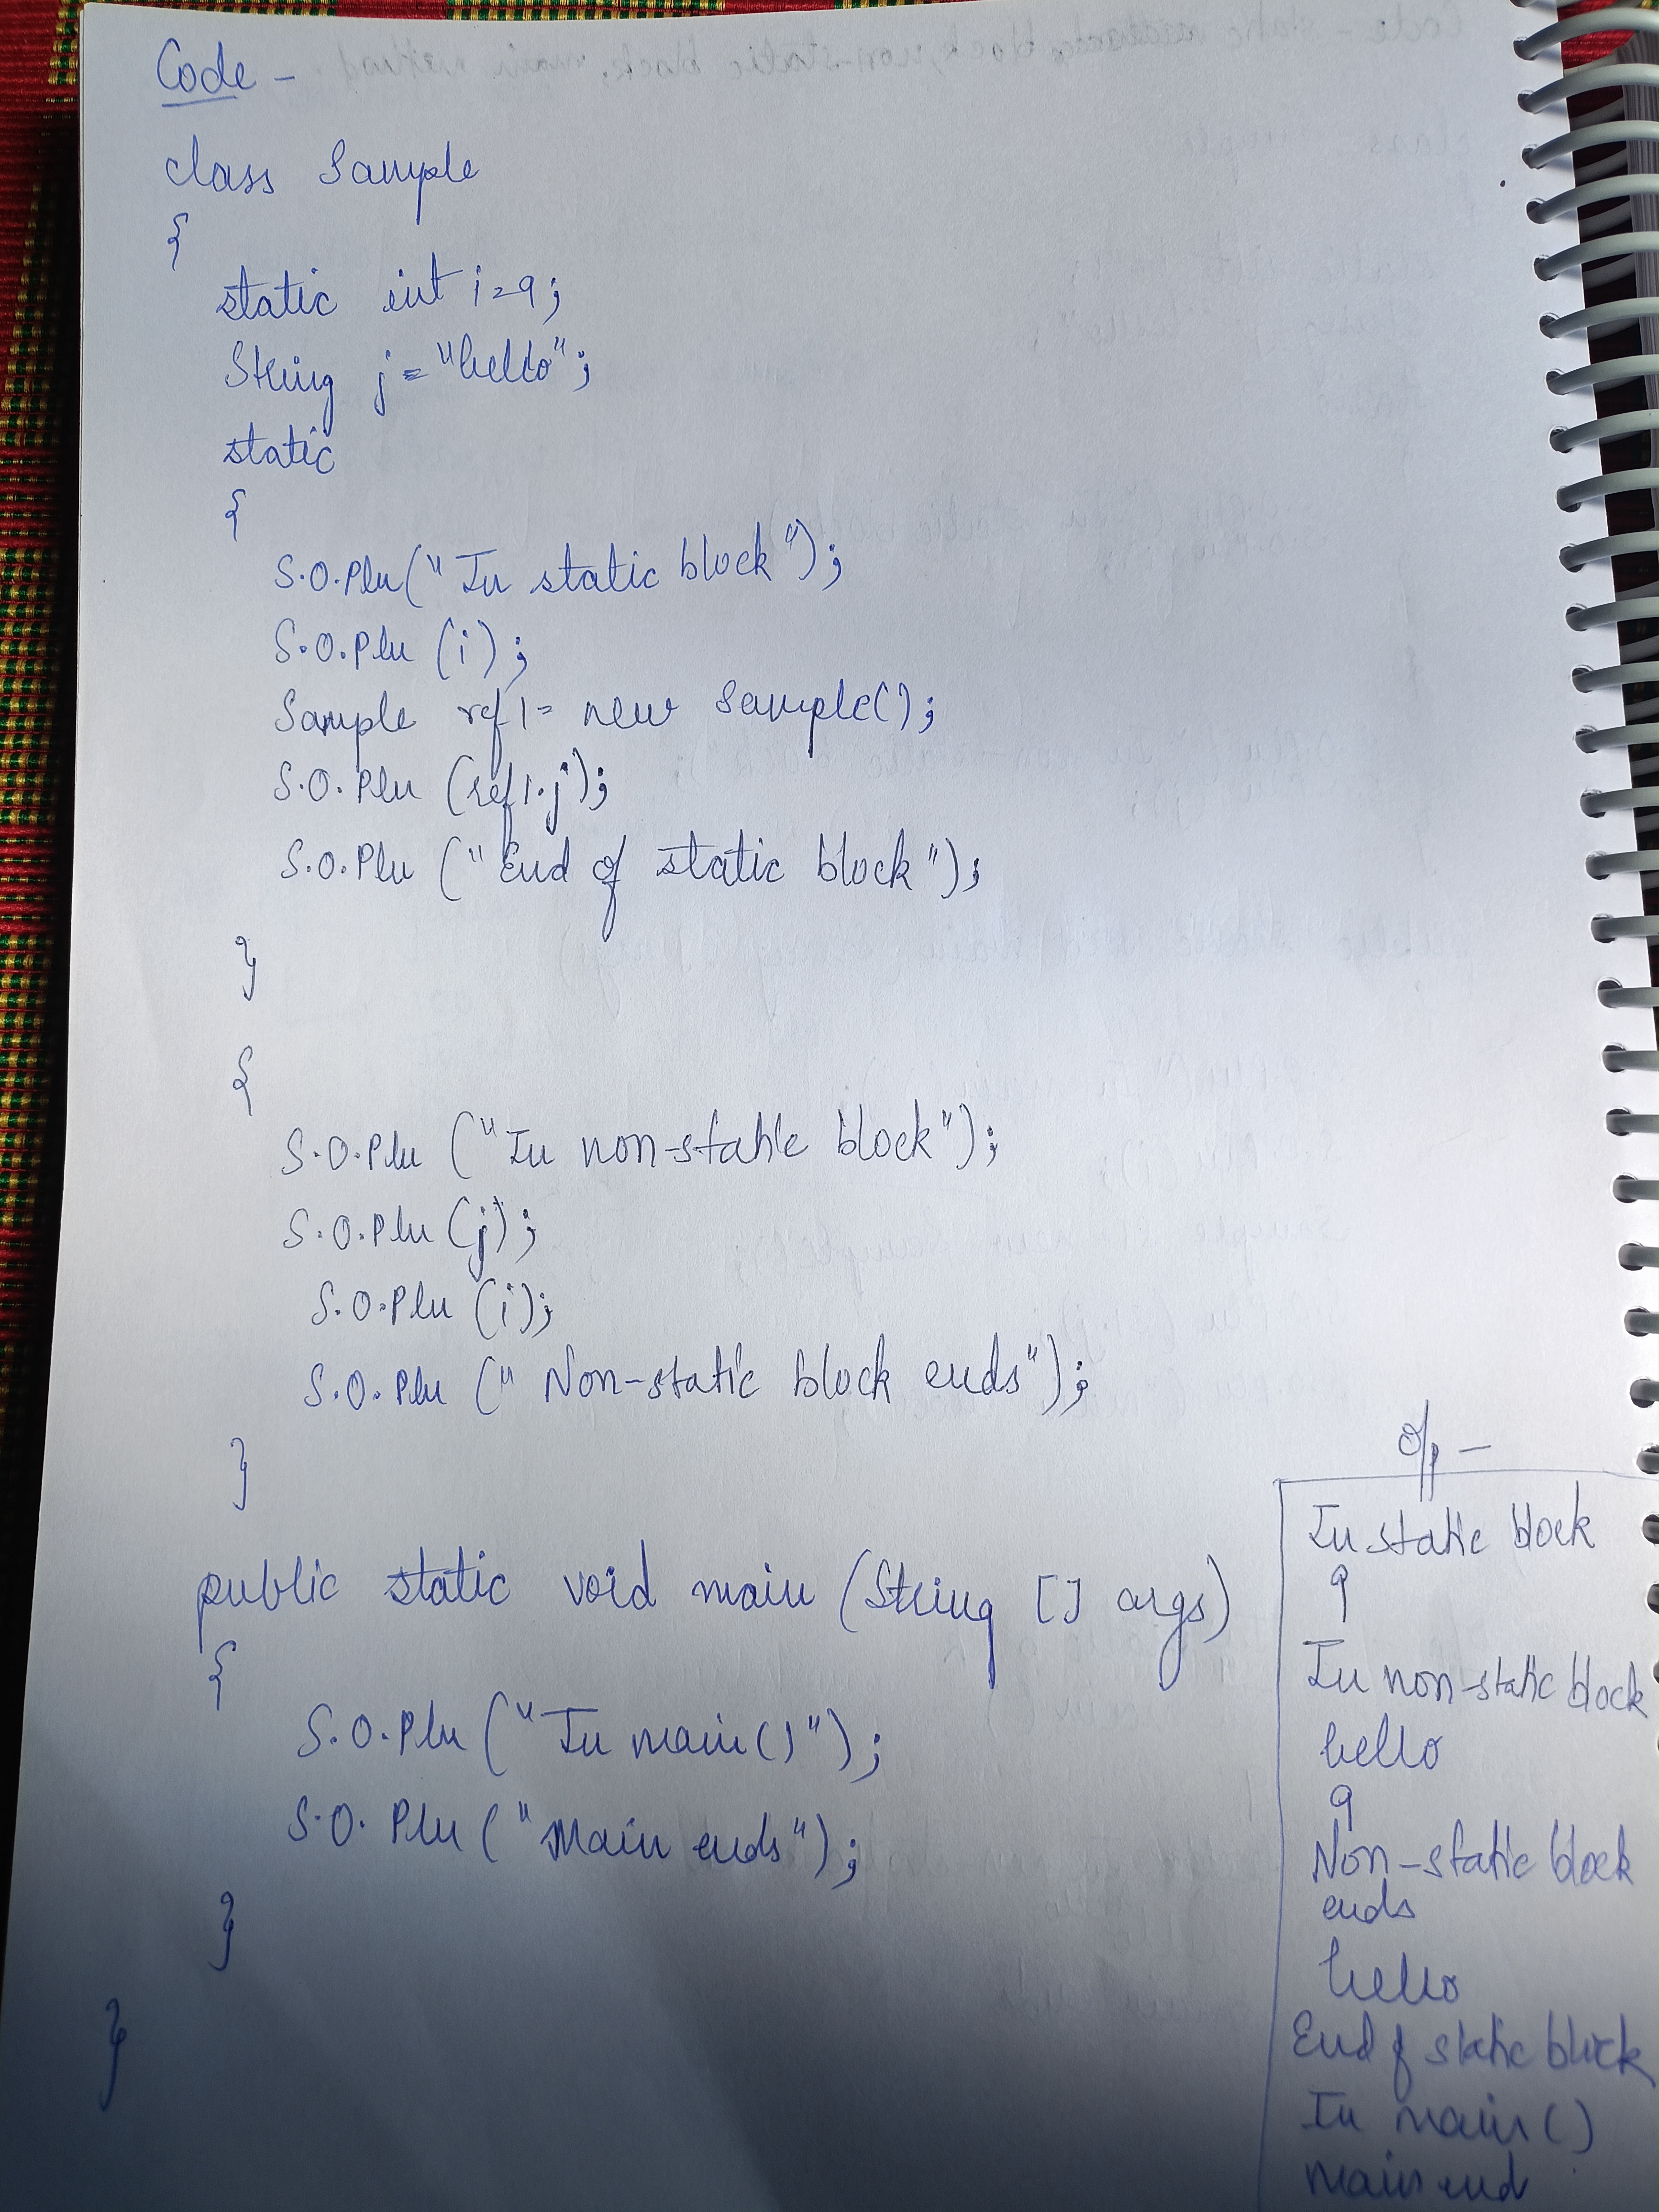 Code -
class Sample
{
static int i=9;
String j="hello";
static
{
S.O.Pln("In static block");
S.O.Pln (i);
Sample ref1= new Sample();
S.O.Pln (ref1.j);
S.O.Pln ("End of static block");
}
{
S.O.Pln ("In non-static block");
S.O.Pln (j);
S.O.Pln (i);
S.O.Pln ("Non-static block ends");
}
public static void main (String [] args)
{
S.O.Pln ("In main()");
S.O. Pln ("Main ends");
}
}
O/p -
In static block
9
In non-static block
hello
9
Non-static block
ends
hello
End of static block
In main()
Main end